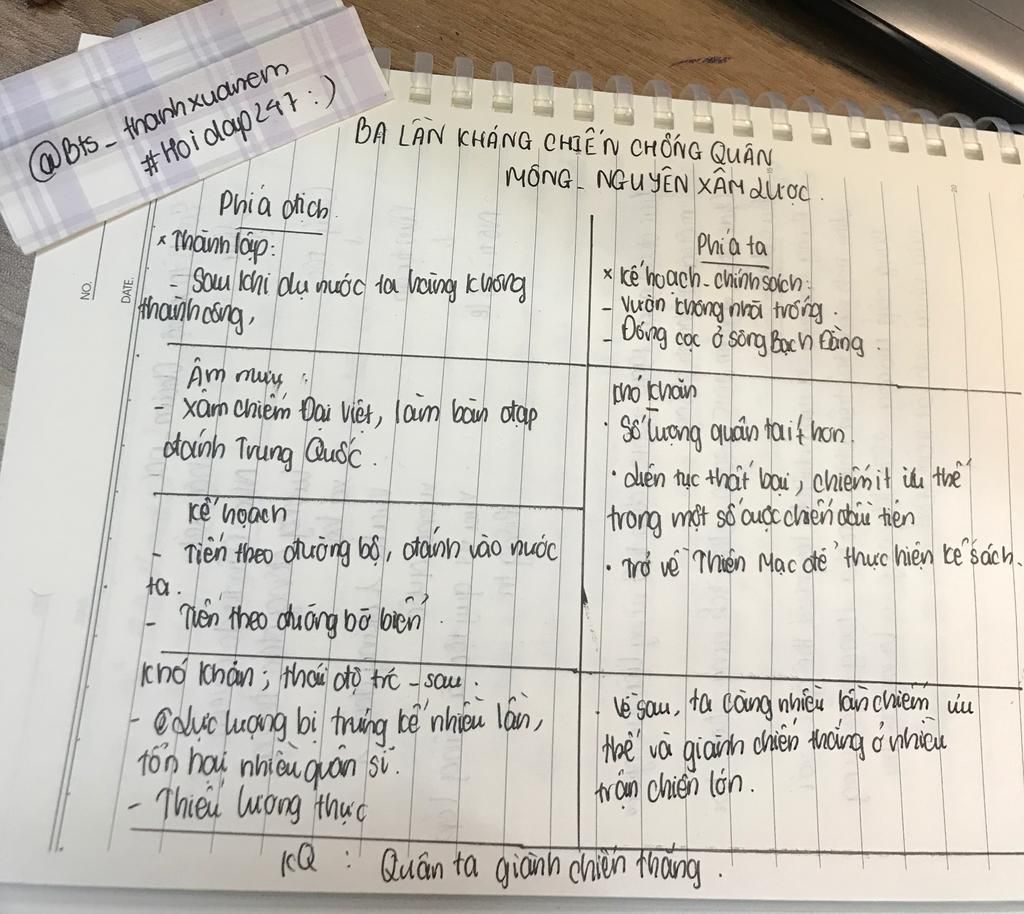 @Bts_thanhxuanem
#Hoidap247 :)
BA LẦN KHÁNG CHIẾN CHỐNG QUÂN
MÔNG - NGUYÊN XÂM LƯỢC.
Phía địch
* Thành lập:
- Sau khi dụ nước ta hàng không
thành công,
Âm mưu :
- Xâm chiếm Đại Việt, làm bàn đạp
đánh Trung Quốc.
Kế hoạch
- Tiến theo đường bộ, đánh vào nước
ta.
- Tiến theo đường bờ biển.
Khó khăn; thái độ trc - sau.
- lực lượng bị trúng kế nhiều lần,
tổn hại nhiều quân sĩ.
- Thiếu lương thực
Phía ta
* Kế hoạch - chính sách:
- Vườn không nhà trống.
- Đóng cọc ở sông Bạch Đằng.
Khó khăn
· Số lượng quân ta ít hơn.
· Liên tục thất bại, chiếm ít ưu thế
trong một số cuộc chiến đầu tiên
· Trở về Thiên Mạc để thực hiện kế sách.
· Về sau, ta càng nhiều lần chiếm ưu
thế và giành chiến thắng ở nhiều
trận chiến lớn.
KQ : Quân ta giành chiến thắng.
NO.
DATE.